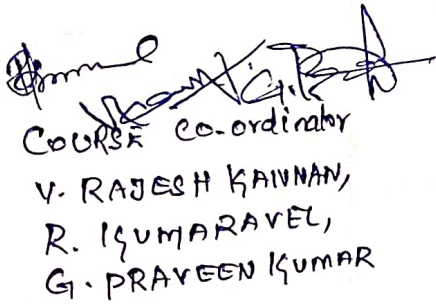 COURSE co-ordinator
V. RAJESH KANNAN,
R. KUMARAVEL,
G. PRAVEEN KUMAR